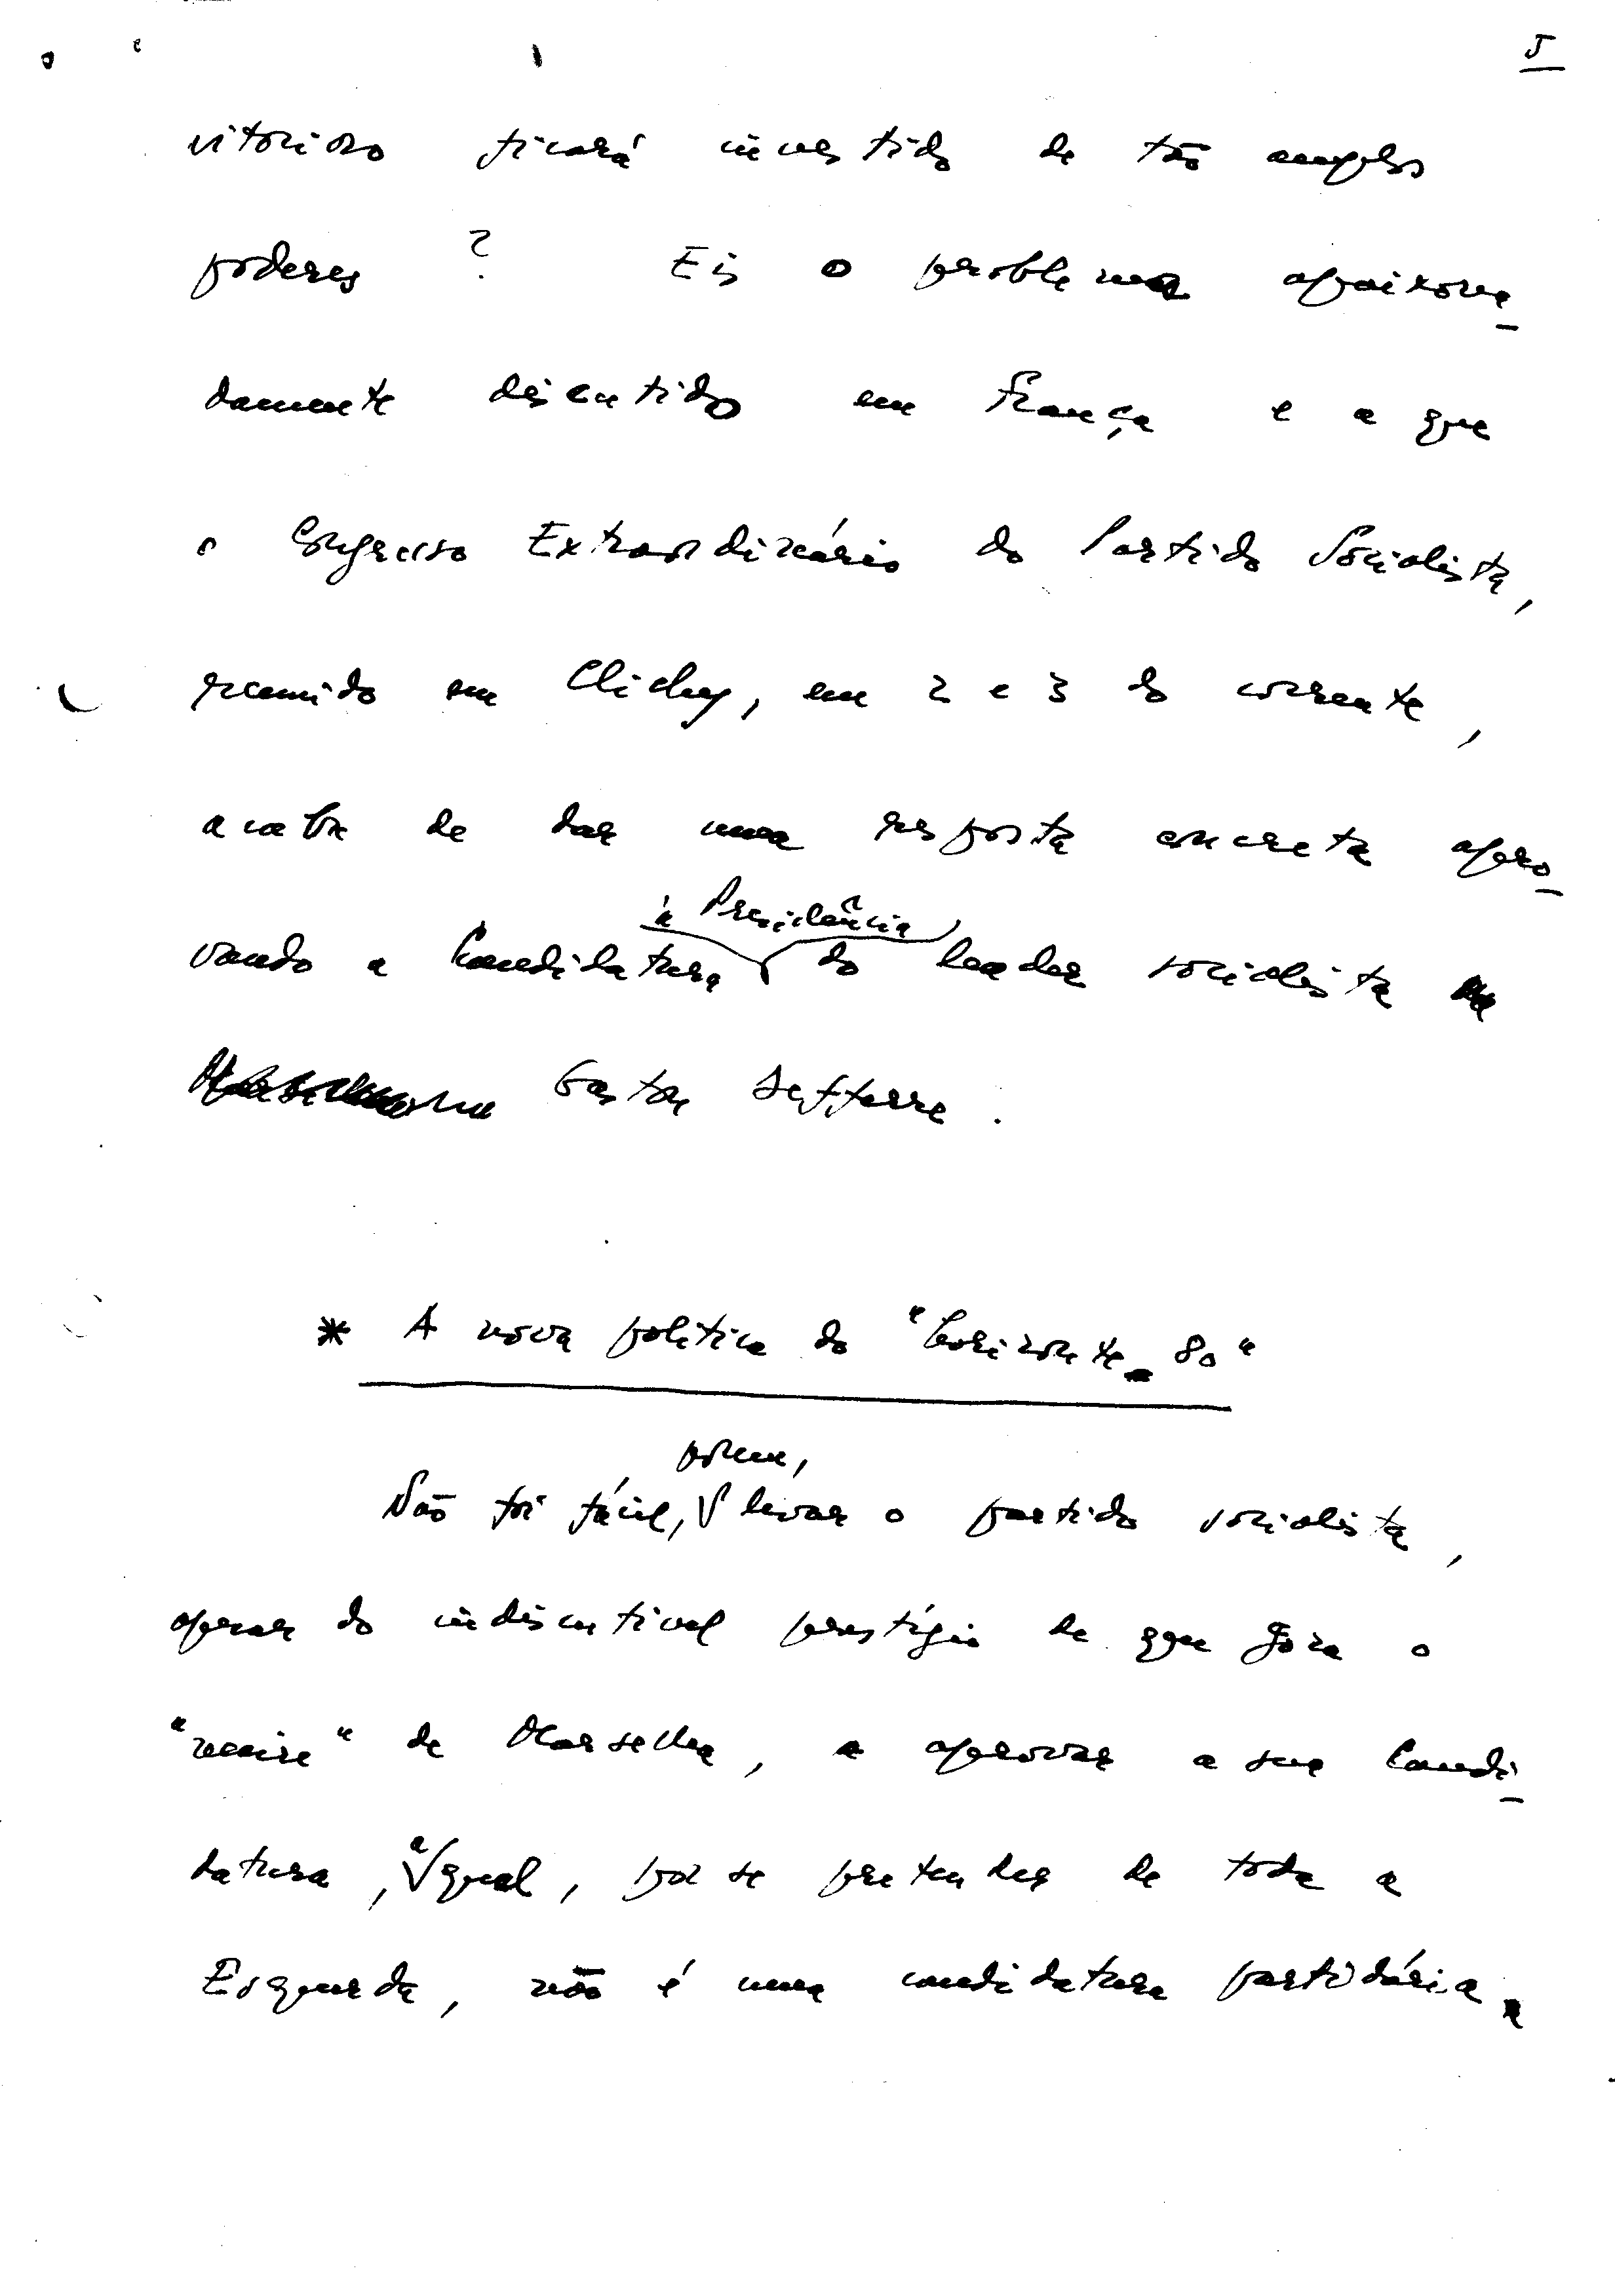 5
vitorioso ficará investido de tão amplos
poderes ? Eis o problema apaixona-
damente discutido em França e a que
o Congresso Extraordinário do Partido Socialista,
reunido em Clichy, em 2 e 3 do corrente,
acaba de dar uma resposta concreta apro-
à Presidência
vando a Candidatura do leader socialista
Gaston Defferre.
* A nova política do "horizonte-80"
porem,
Não foi fácil, levar o partido socialista,
apesar do indiscutível prestígio de que goza o
"maire" de Marselha, a aprovar a sua Candi-
datura, a qual, por se pretender de toda a
Esquerda, não é uma candidatura partidária